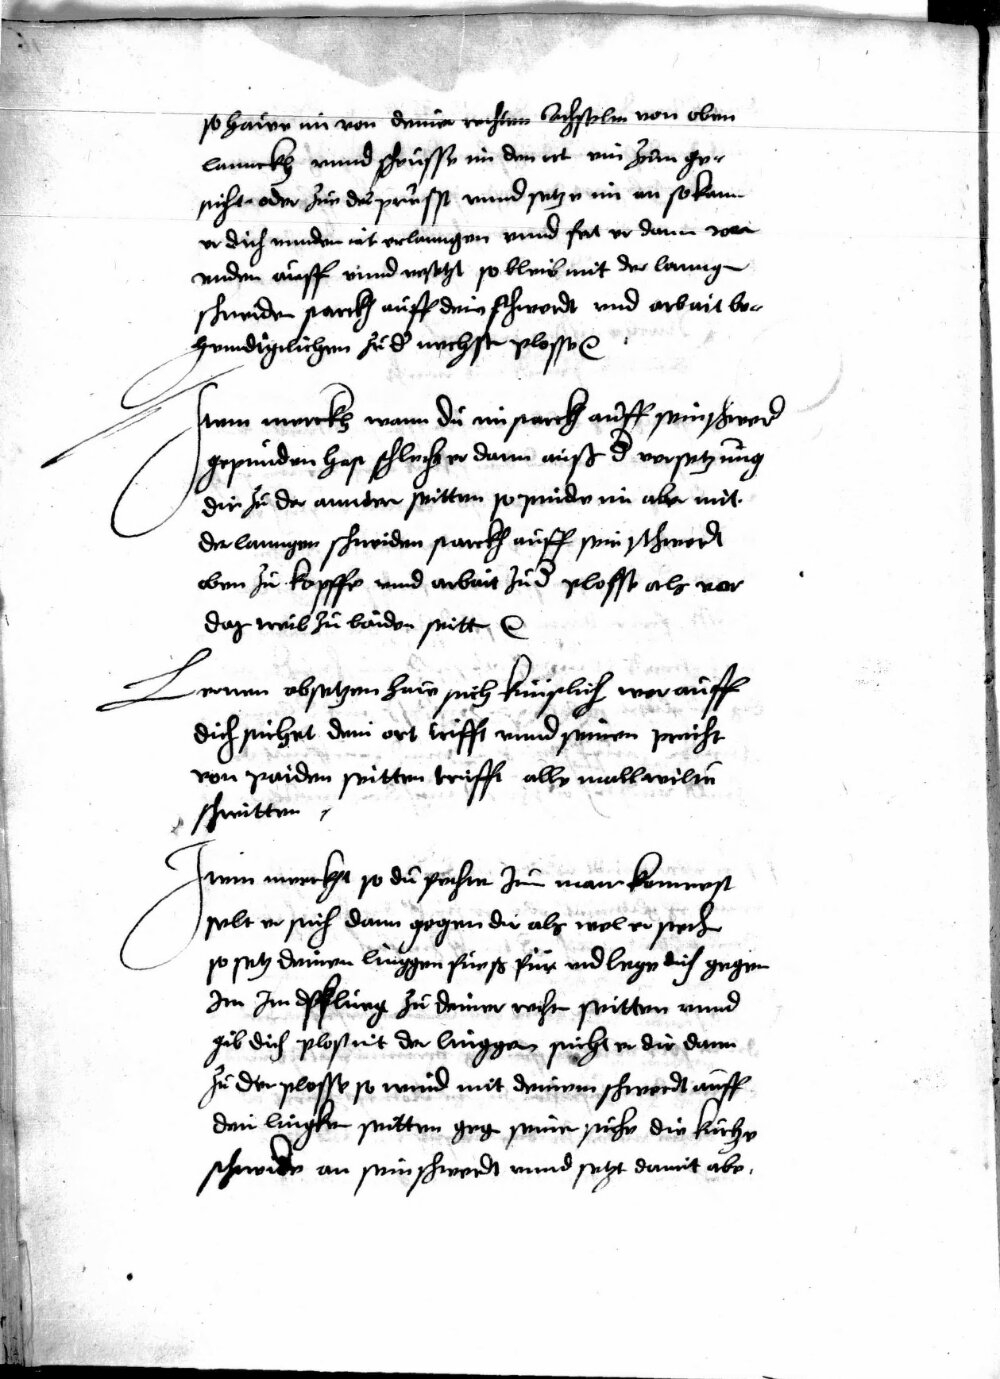 so hawe im von deiner rechten Achseln von oben
lannckh vnnd scheusse im den ort ein zum ge-
sicht oder zue der prusst vnnd setze im an so kann
er dich vnnden nit erlanngen vnnd fert er dann von
vnden auff vnnd vesetzt so bleib mit der lanng
schneiden starckh auff dein schwerdt vnd arbait be-
henndigklichen zu d nechste plosse
Item merckh wann du im starckh auff sein schwerd
gepunden hast schlecht er dann auß d versetzung
dir zu der annder seitten so pinde im aber mit
der lanngen schneiden starckh auff sein schwerdt
oben zu kopffe vnnd arbait zu d plosse als vor
daz treib zu baiden seitt
Lernen absetzen haw stich kunstlich wer auff
dich stichet dein ort trifft vnnd seinen pricht
von paiden seitten triffe alle mall wiltu
schreitten
Item merckht so du schier zum man komenst
stelt er sich dann gegen dir als wel er stech
so setz deinen linggen fuess für vnd lege dich gegen
im im d pflueg zu deiner recht seitten vnnd
gib dich plos mit der linggen sticht er dir dann
zu der plosse so wind mit deinem schwerdt auff
dein lingke seitten geg seine stiche die kurtze
schneide an sein schwerdt vnnd setzt damit abe